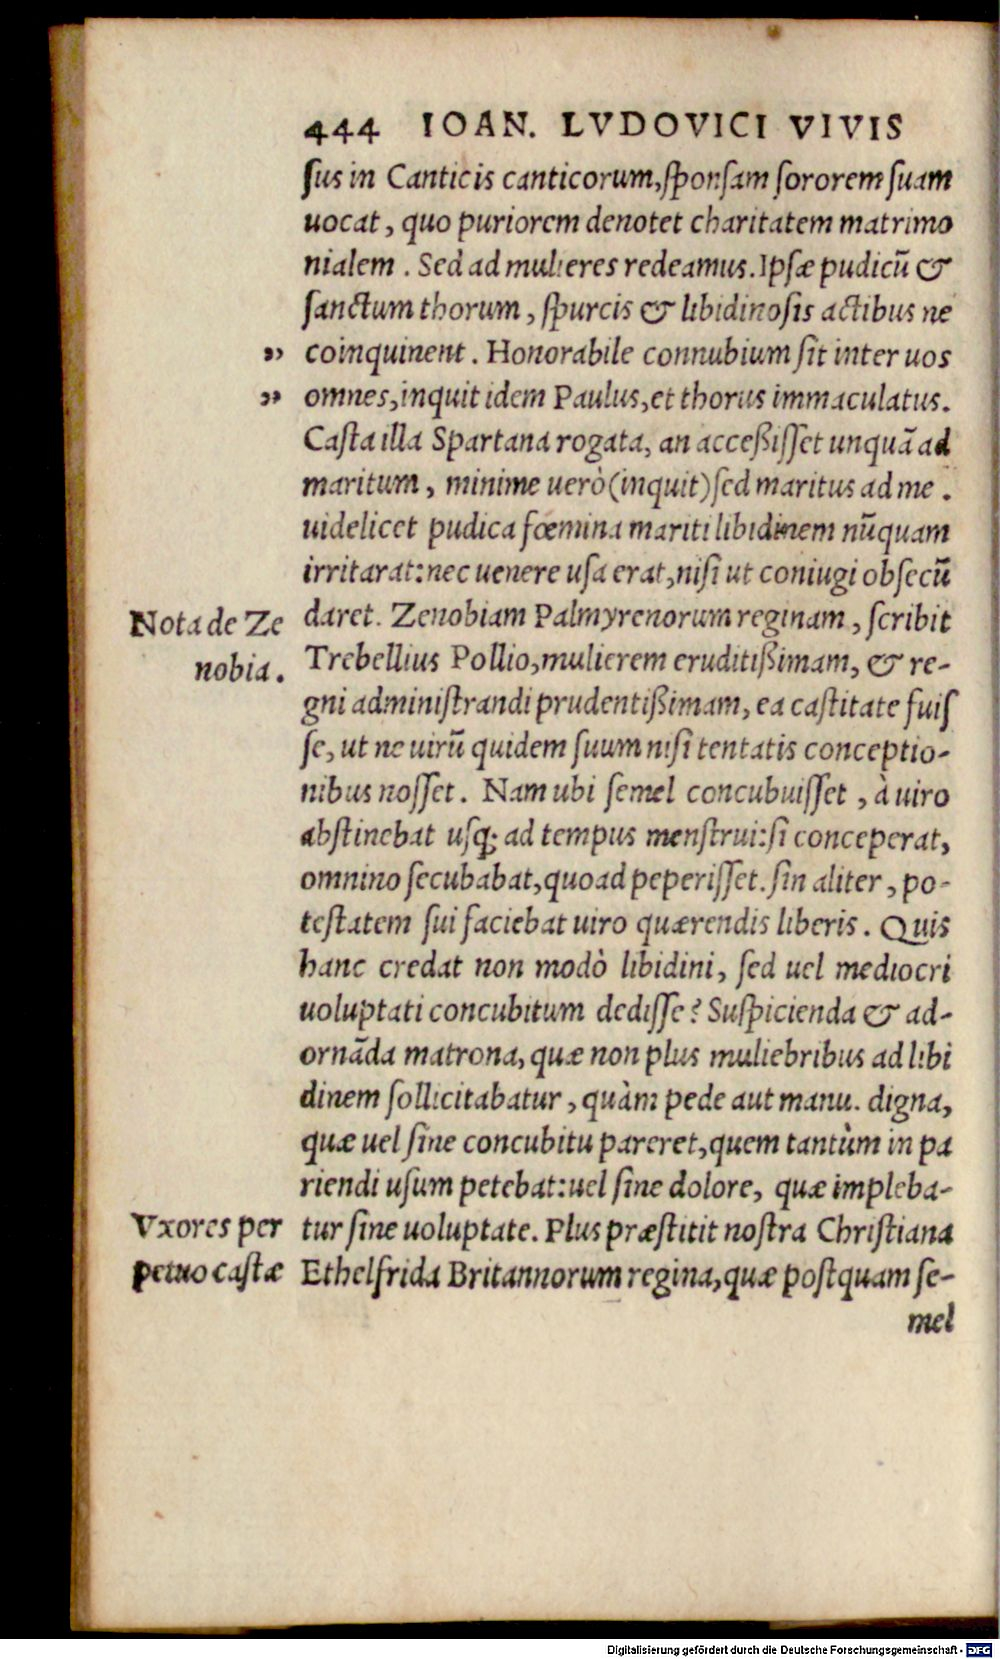 444 IOAN. LVDOVICI VIVIS
ſus in Canticis canticorum, ſponſam ſororem ſuam
uocat, quo puriorem denotet charitatem matrimo
nialem. Sed ad mulieres redeamus. Ipſæ pudicū &
ſanctum thorum, ſpurcis & libidinoſis actibus ne
„ coinquinent. Honorabile connubium ſit inter uos
„ omnes, inquit idem Paulus, et thorus immaculatus.
Caſta illa Spartana rogata, an acceßiſſet unquā ad
maritum, minime uerò (inquit) ſed maritus ad me.
uidelicet pudica fœmina mariti libidinem nūquam
irritarat: nec uenere uſa erat, niſi ut coniugi obſecū
Nota de Ze
nobia.
daret. Zenobiam Palmyrenorum reginam, ſcribit
Trebellius Pollio, mulierem eruditißimam, & re-
gni adminiſtrandi prudentißimam, ea caſtitate fuiſ
ſe, ut ne uirū quidem ſuum niſi tentatis conceptio-
nibus noſſet. Nam ubi ſemel concubuiſſet, à uiro
abſtinebat uſq; ad tempus menſtrui: ſi conceperat,
omnino ſecubabat, quoad peperiſſet. ſin aliter, po-
teſtatem ſui faciebat uiro quærendis liberis. Quis
hanc credat non modò libidini, ſed uel mediocri
uoluptati concubitum dediſſe? Suſpicienda & ad-
ornāda matrona, quæ non plus muliebribus ad libi
dinem ſollicitabatur, quàm pede aut manu. digna,
quæ uel ſine concubitu pareret, quem tantùm in pa
riendi uſum petebat: uel ſine dolore, quæ impleba-
Vxores per
petuo caſtæ
tur ſine uoluptate. Plus præſtitit noſtra Chriſtiana
Ethelfrida Britannorum regina, quæ poſtquam ſe-
mel
Digitalisierung gefördert durch die Deutsche Forschungsgemeinschaft - DFG